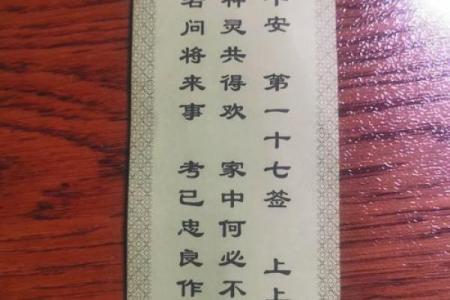 平安 第一十七签 上上
神灵共得欢 家中何必不
若问将来事 考己忠良作